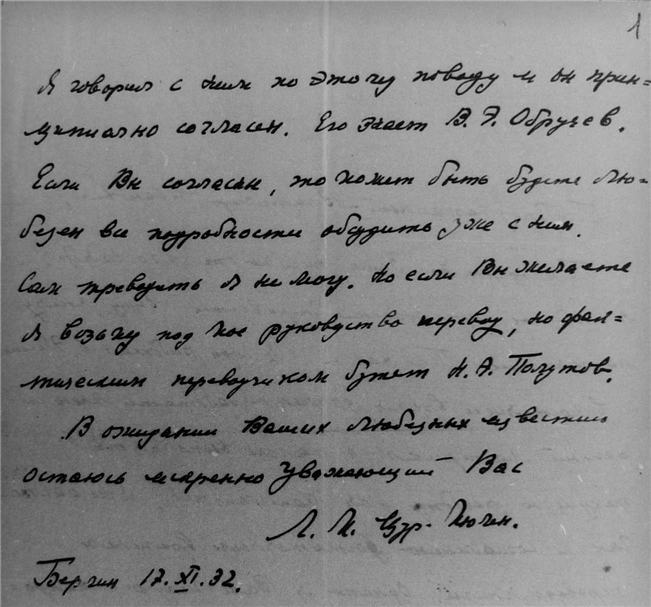 1
Я говорил с ним по этому поводу и он прин=
ципиально согласен. Его знает В. Э. Обручев.
Если Вы согласен, то может быть будете лю-
безен все подробности обсудить уже с ним.
Сам переводить я не могу. Но если Вы желаете
я возьму под мое руководство перевод, но фак=
тическим переводчиком будет Н. А. Полутов.
В ожидании Ваших любезных известий
остаюсь искренно уважающий Вас
Л. М. Цур-Мюлен.
Берлин 17.XI.32.